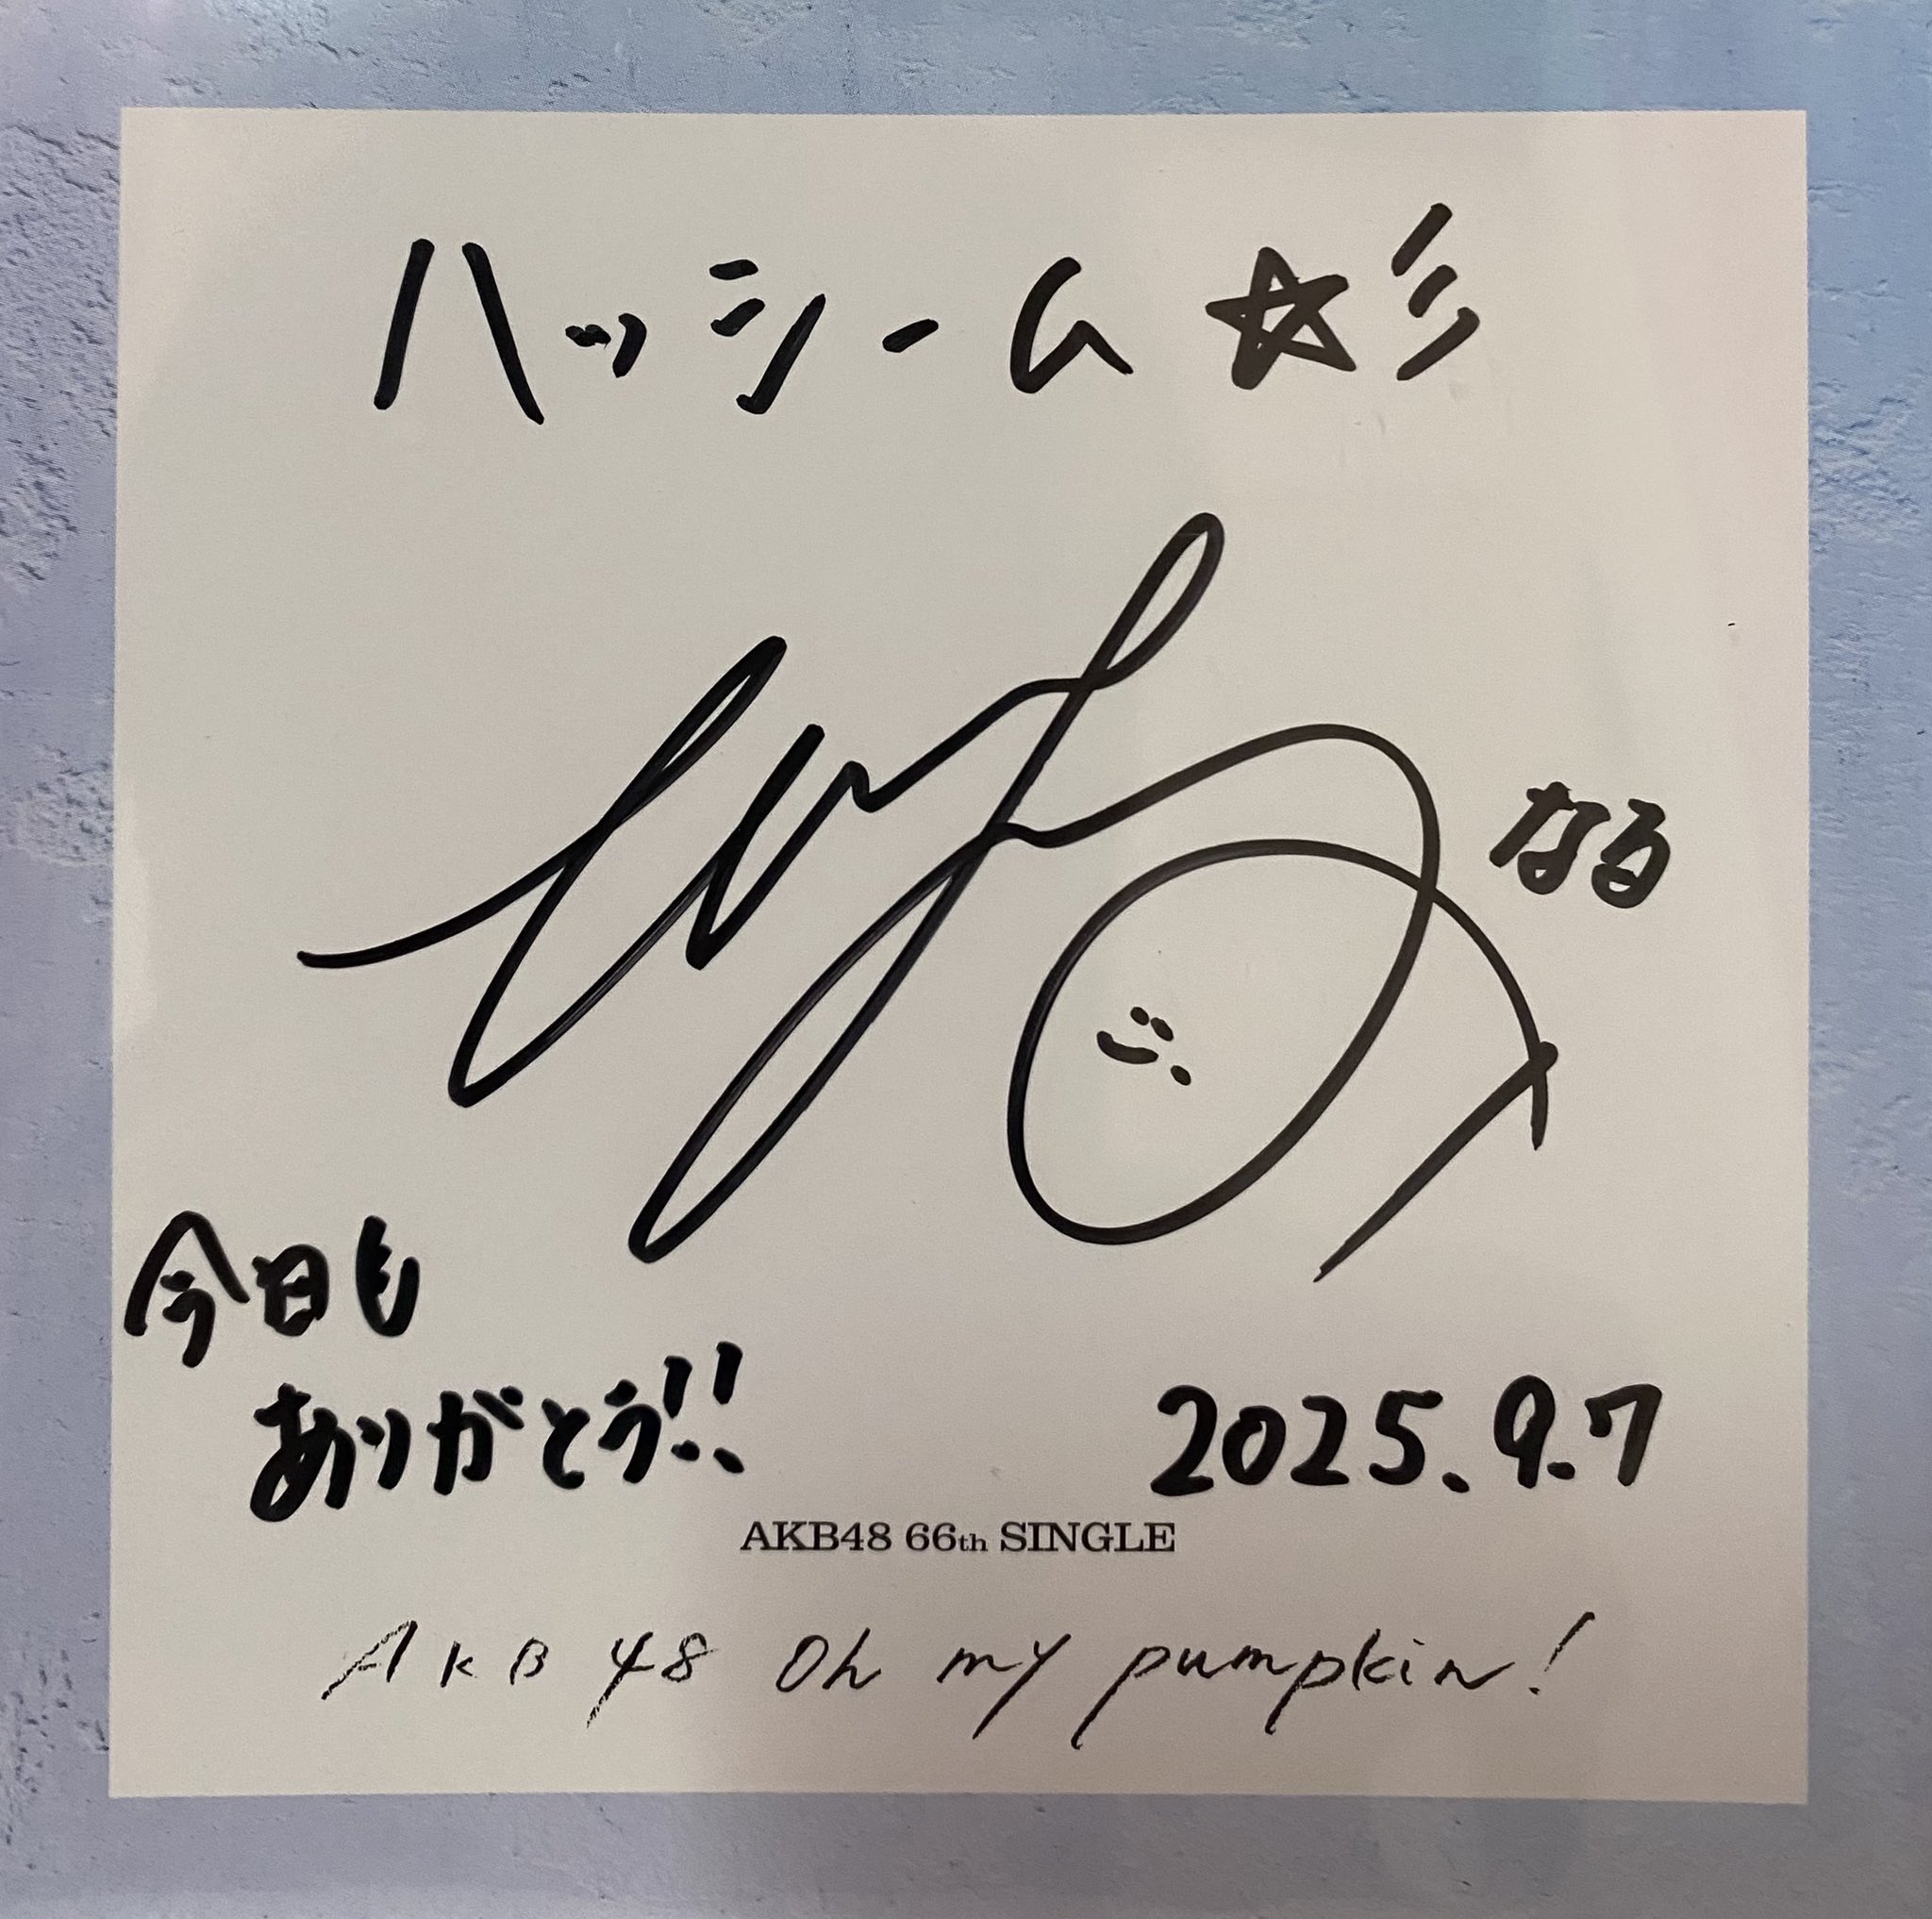 ハッシーム☆彡
なる
今日も
ありがとう!!
2025.9.7
AKB48 66th SINGLE
AKB48 Oh my pumpkin!